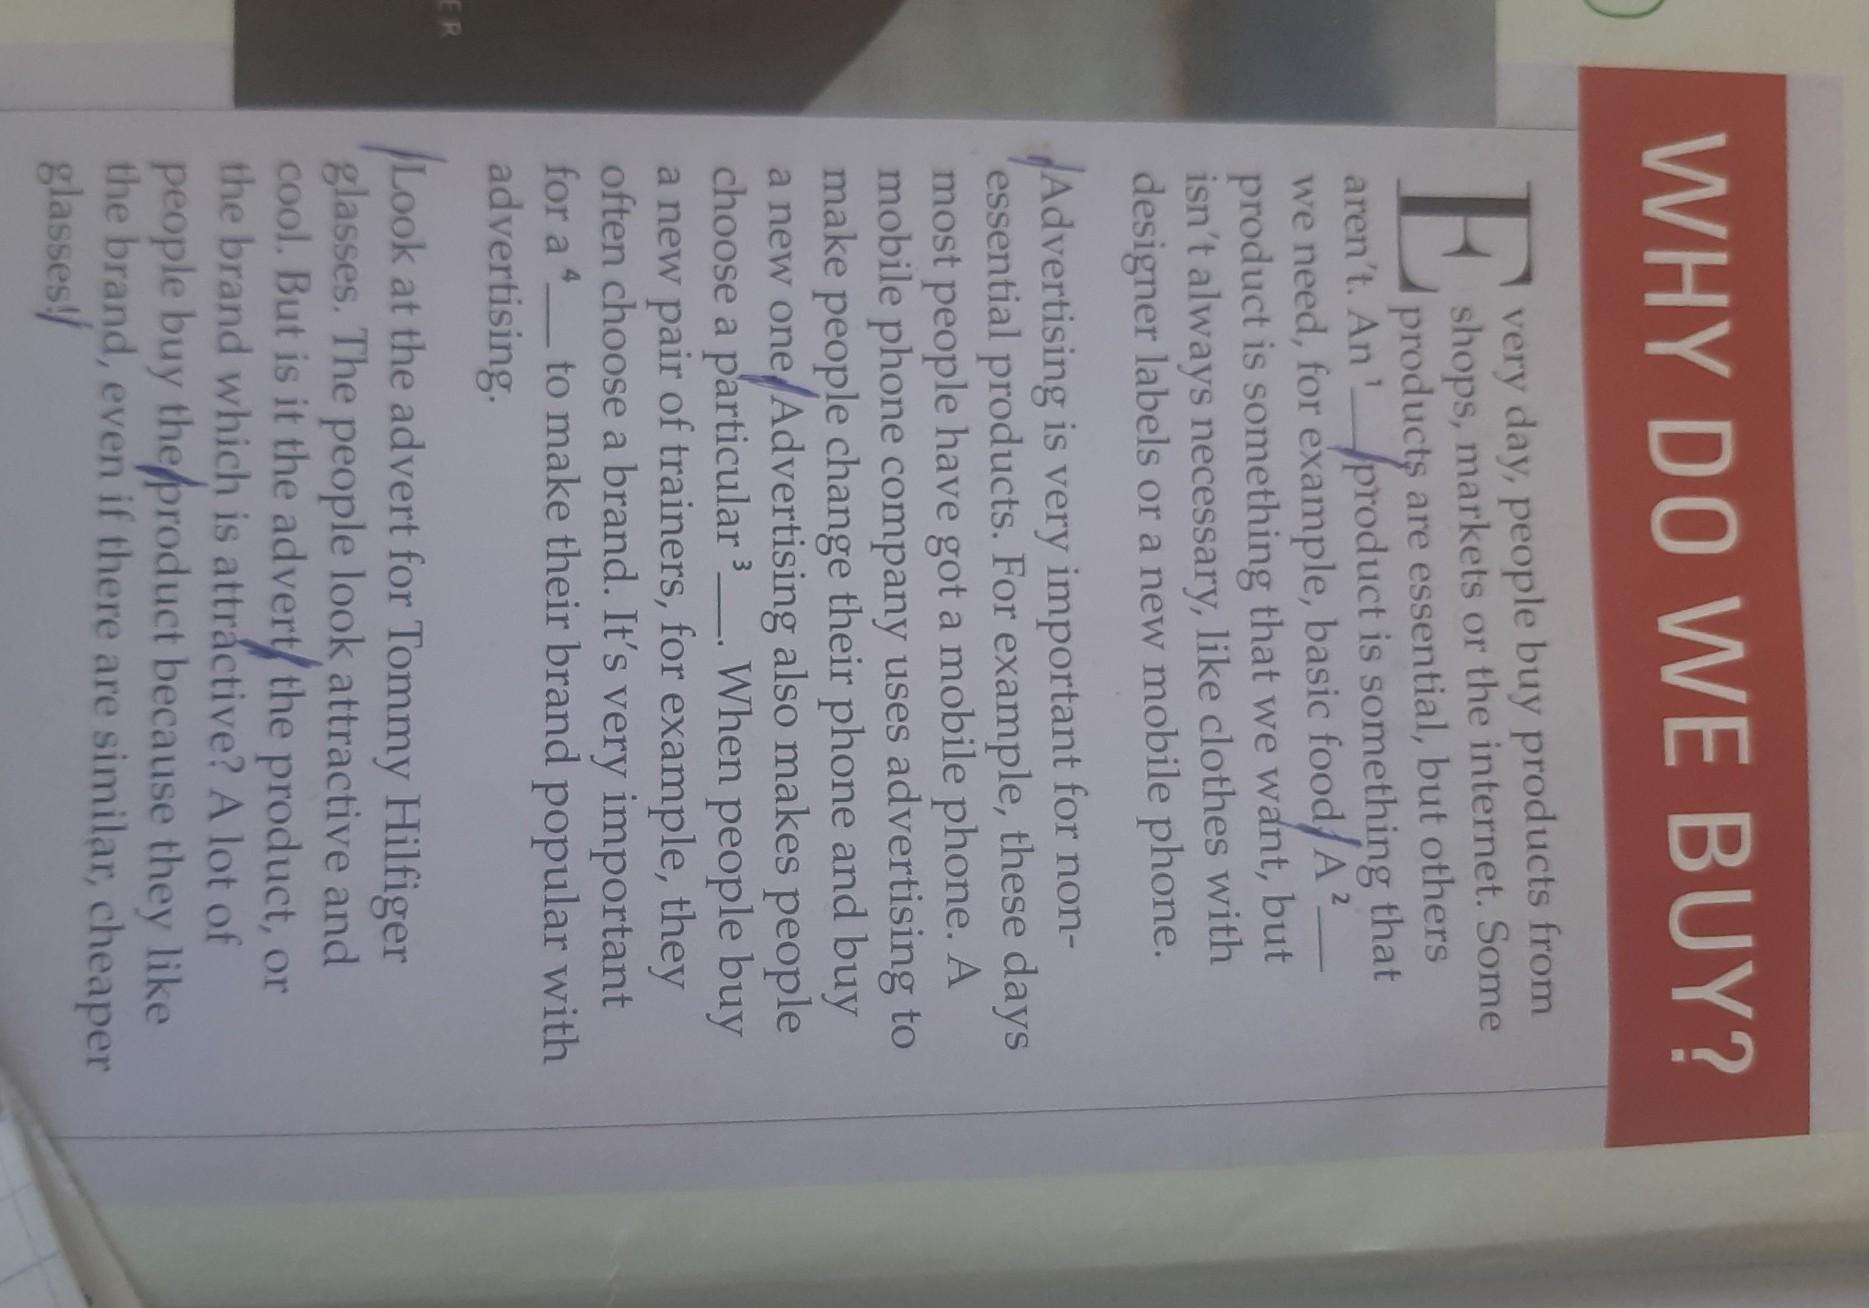 WHY DO WE BUY?
Every day, people buy products from
shops, markets or the internet. Some
products are essential, but others
aren't. An ¹___ product is something that
we need, for example, basic food. A ²___
product is something that we want, but
isn't always necessary, like clothes with
designer labels or a new mobile phone.
Advertising is very important for non-
essential products. For example, these days
most people have got a mobile phone. A
mobile phone company uses advertising to
make people change their phone and buy
a new one. Advertising also makes people
choose a particular ³___. When people buy
a new pair of trainers, for example, they
often choose a brand. It's very important
for a ⁴___ to make their brand popular with
advertising.
Look at the advert for Tommy Hilfiger
glasses. The people look attractive and
cool. But is it the advert, the product, or
the brand which is attractive? A lot of
people buy the product because they like
the brand, even if there are similar, cheaper
glasses!
ER